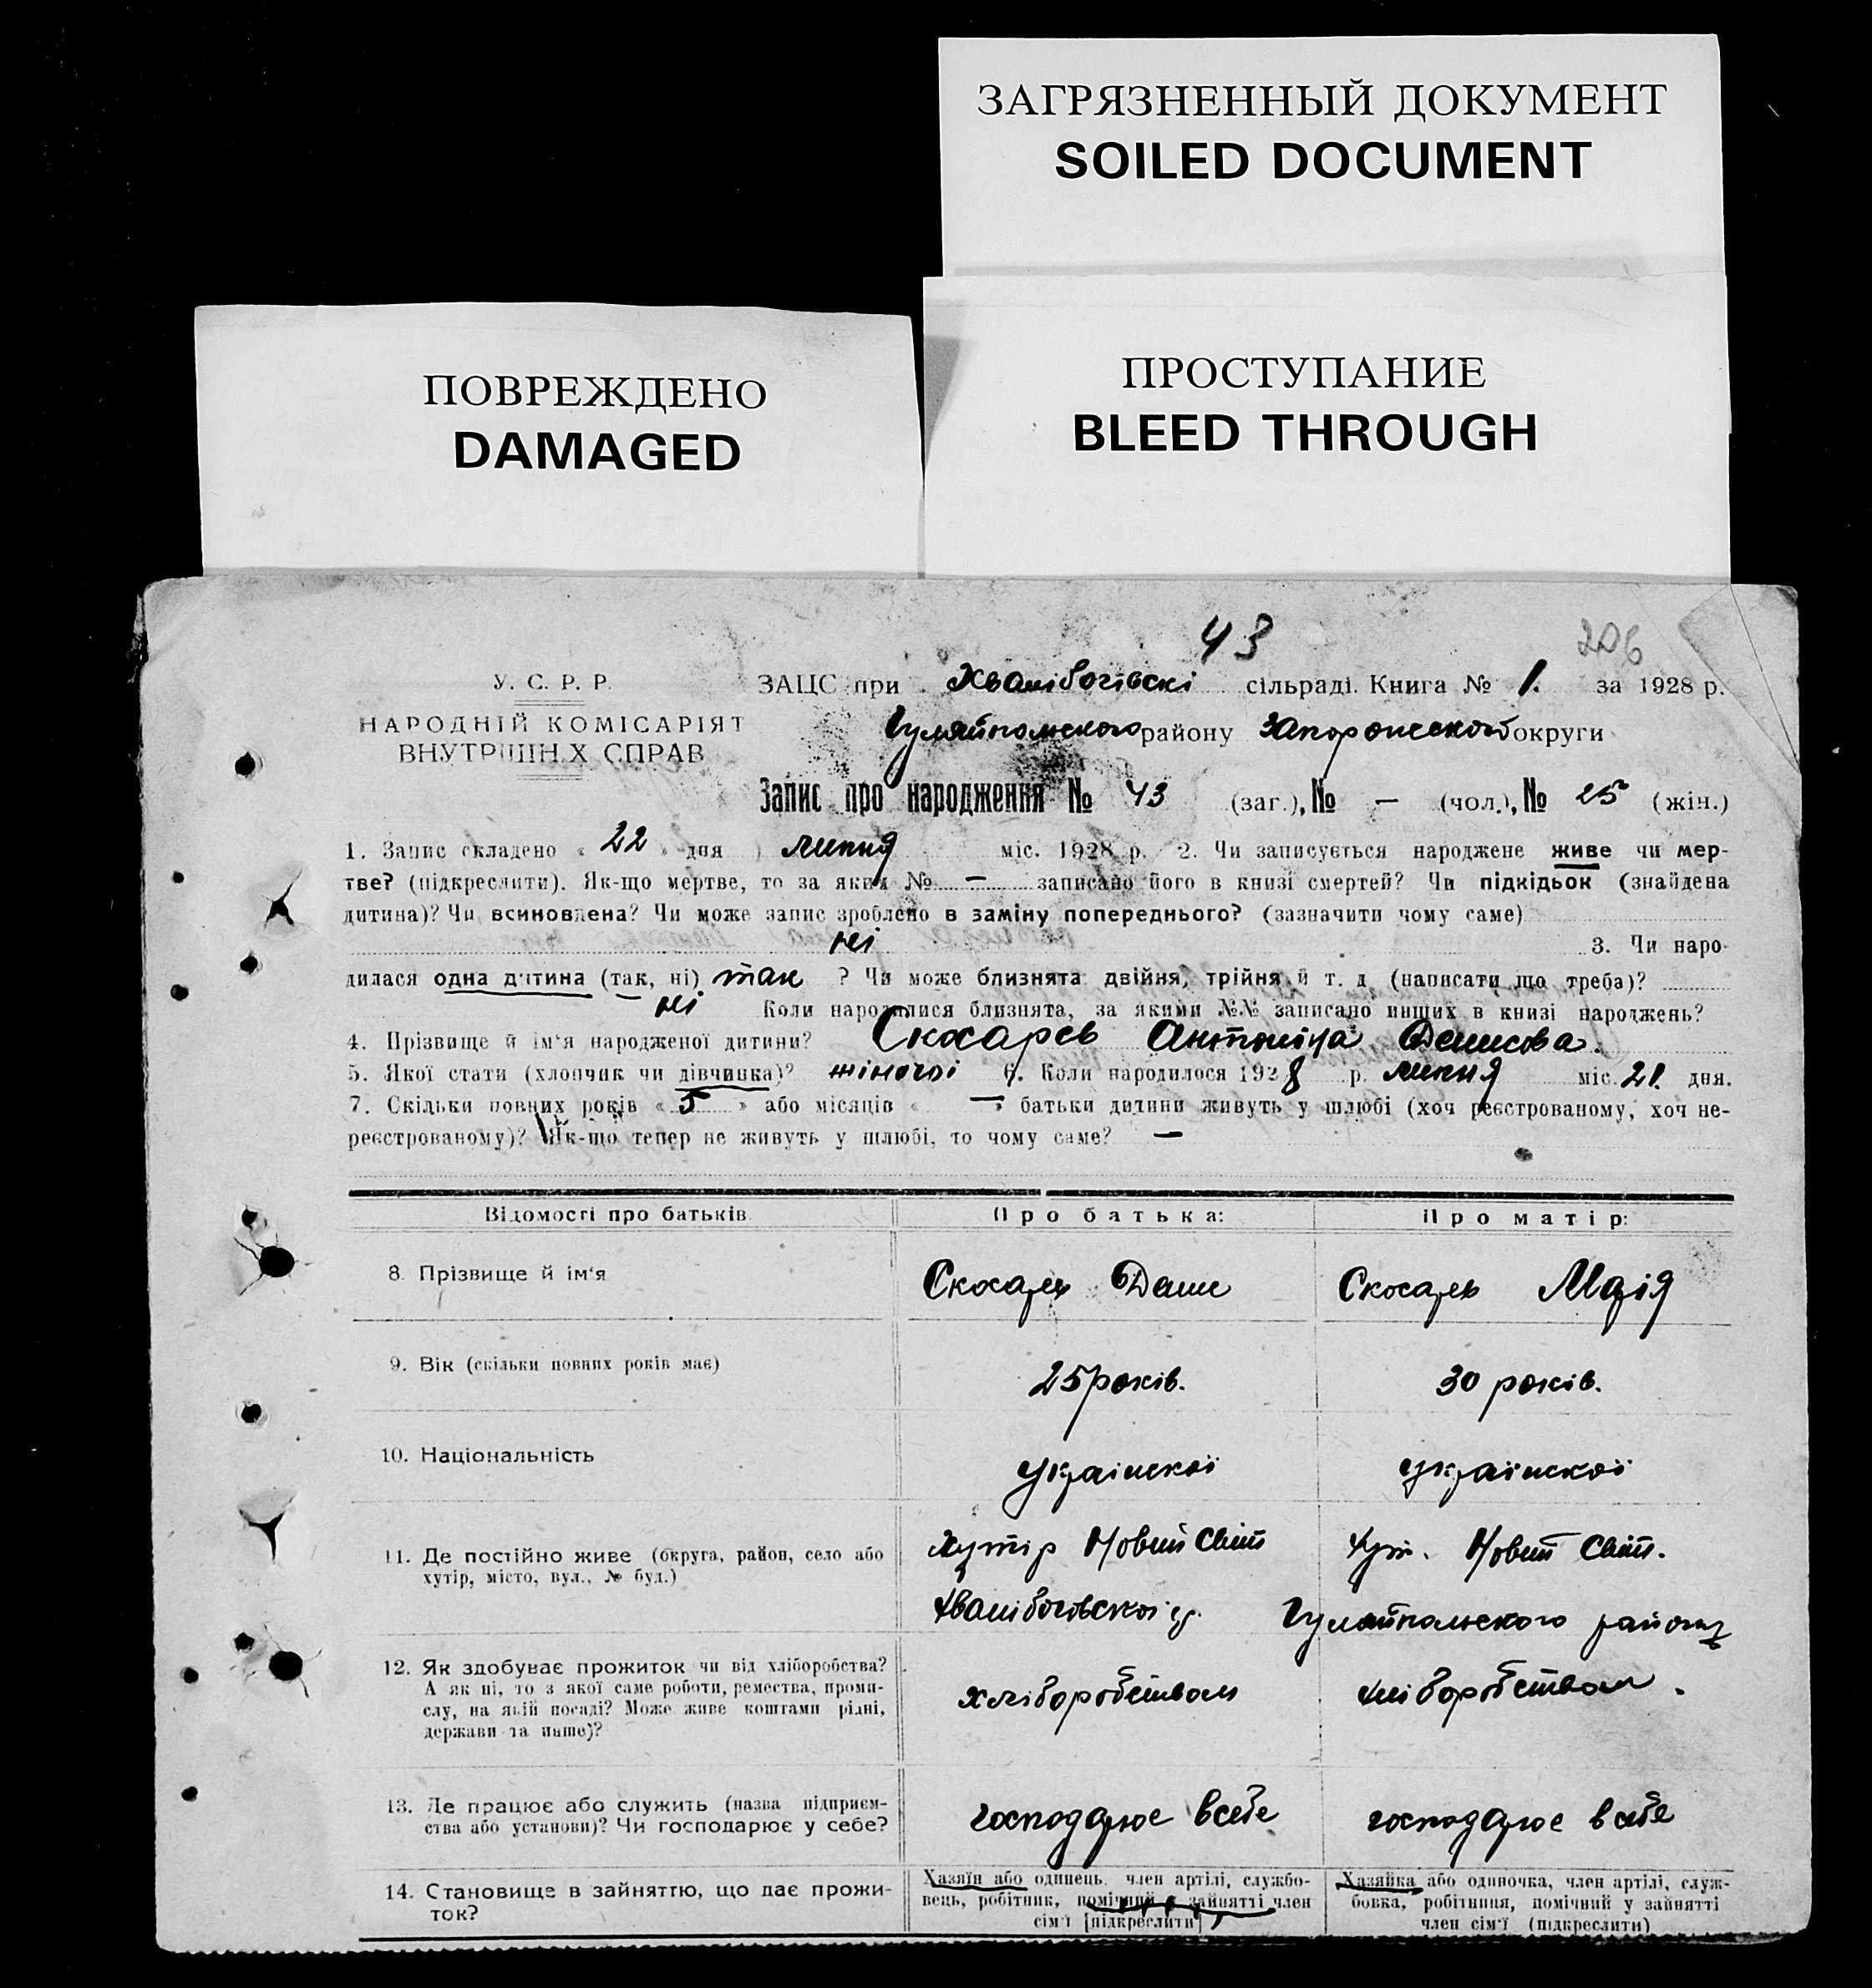 ЗАГРЯЗНЕННЫЙ ДОКУМЕНТ
SOILED DOCUMENT
ПОВРЕЖДЕНО
DAMAGED
ПРОСТУПАНИЕ
BLEED THROUGH
43
206
У. С. Р. Р.
НАРОДНІЙ КОМІСАРІЯТ
ВНУТРІШН Х СПРАВ
ЗАЦС при Хвалібогівскі сільраді. Книга № 1. за 1928 р.
Гуляйпольского району Запорожского округи
Запис про народження № 43 (заг.), № — (чол.), № 25 (жін.)
1. Запис складено « 22 » дня липня міс. 1928 р. 2. Чи записується народжене живе чи мер-
тве? (підкреслити). Як-що мертве, то за яким № — записано його в книзі смертей? Чи підкідьок (знайдена
дитина)? Чи всиновлена? Чи може запис зроблено в заміну попереднього? (зазначити чому саме)
ні 3. Чи наро-
дилася одна дитина (так, ні) так ? Чи може близнята двійня, трійня й т. д. (написати що треба)?
ні Коли народилися близнята, за якими №№ записано инших в книзі народжень?
4. Прізвище й ім'я народженої дитини? Скосарев Антоніна Денисова.
5. Якої стати (хлопчик чи дівчинка)? жіночої 6. Коли народилося 1928 р. липня міс. 21. дня.
7. Скільки повних років « 5 » або місяців « — » батьки дитини живуть у шлюбі (хоч реєстрованому, хоч не-
реєстрованому)? Як-що тепер не живуть у шлюбі, то чому саме? —
Відомості про батьків
Про батька:
Про матір:
8. Прізвище й ім'я
Скосарев Денис
Скосарев Марія
9. Вік (скільки повних років має)
25 років.
30 років.
10. Національність
українскої
українскої
11. Де постійно живе (округа, район, село або
хутір, місто, вул., № буд.)
хутір Новий Світ
Хвалібогівскої
хут. Новий Світ.
Гуляйпольского району
12. Як здобуває прожиток чи від хліборобства?
А як ні, то з якої саме роботи, ремества, проми-
слу, на якій посаді? Може живе коштами рідні,
держави та инше)?
хліборобством
хліборобством.
13. Де працює або служить (назва підприєм-
ства або установи)? Чи господарює у себе?
господарює всебе
господарює в себе
14. Становище в зайняттю, що дає прожи-
ток?
Хазяїн або одинець, член артілі, службо-
вець, робітник, помічний у зайнятті член
сім'ї [підкреслити]
Хазяйка або одиночка, член артілі, служ-
бовка, робітниця, помічний у зайнятті
член сім'ї (підкреслити)